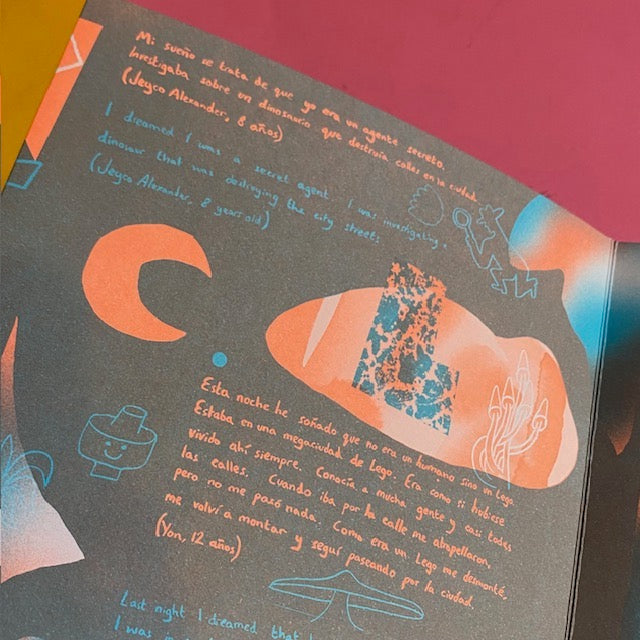 Mi sueño se trata de que yo era un agente secreto.
Investigaba sobre un dinosaurio que destruía calles en la ciudad.
(Jeyco Alexander, 8 años)
I dreamed I was a secret agent. I was investigating
dinosaur that was destroying the city streets
(Jeyco Alexander, 8 years old)
Esta noche he soñado que no era un humano sino un Lego.
Estaba en una megaciudad de Lego. Era como si hubiese
vivido ahí siempre. Conocía a mucha gente y casi todas
las calles. Cuando iba por la calle me atropellaron,
pero no me pasó nada. Como era un Lego me desmonté,
me volví a montar y seguí paseando por la ciudad.
(Yon, 12 años)
Last night I dreamed that I
I was